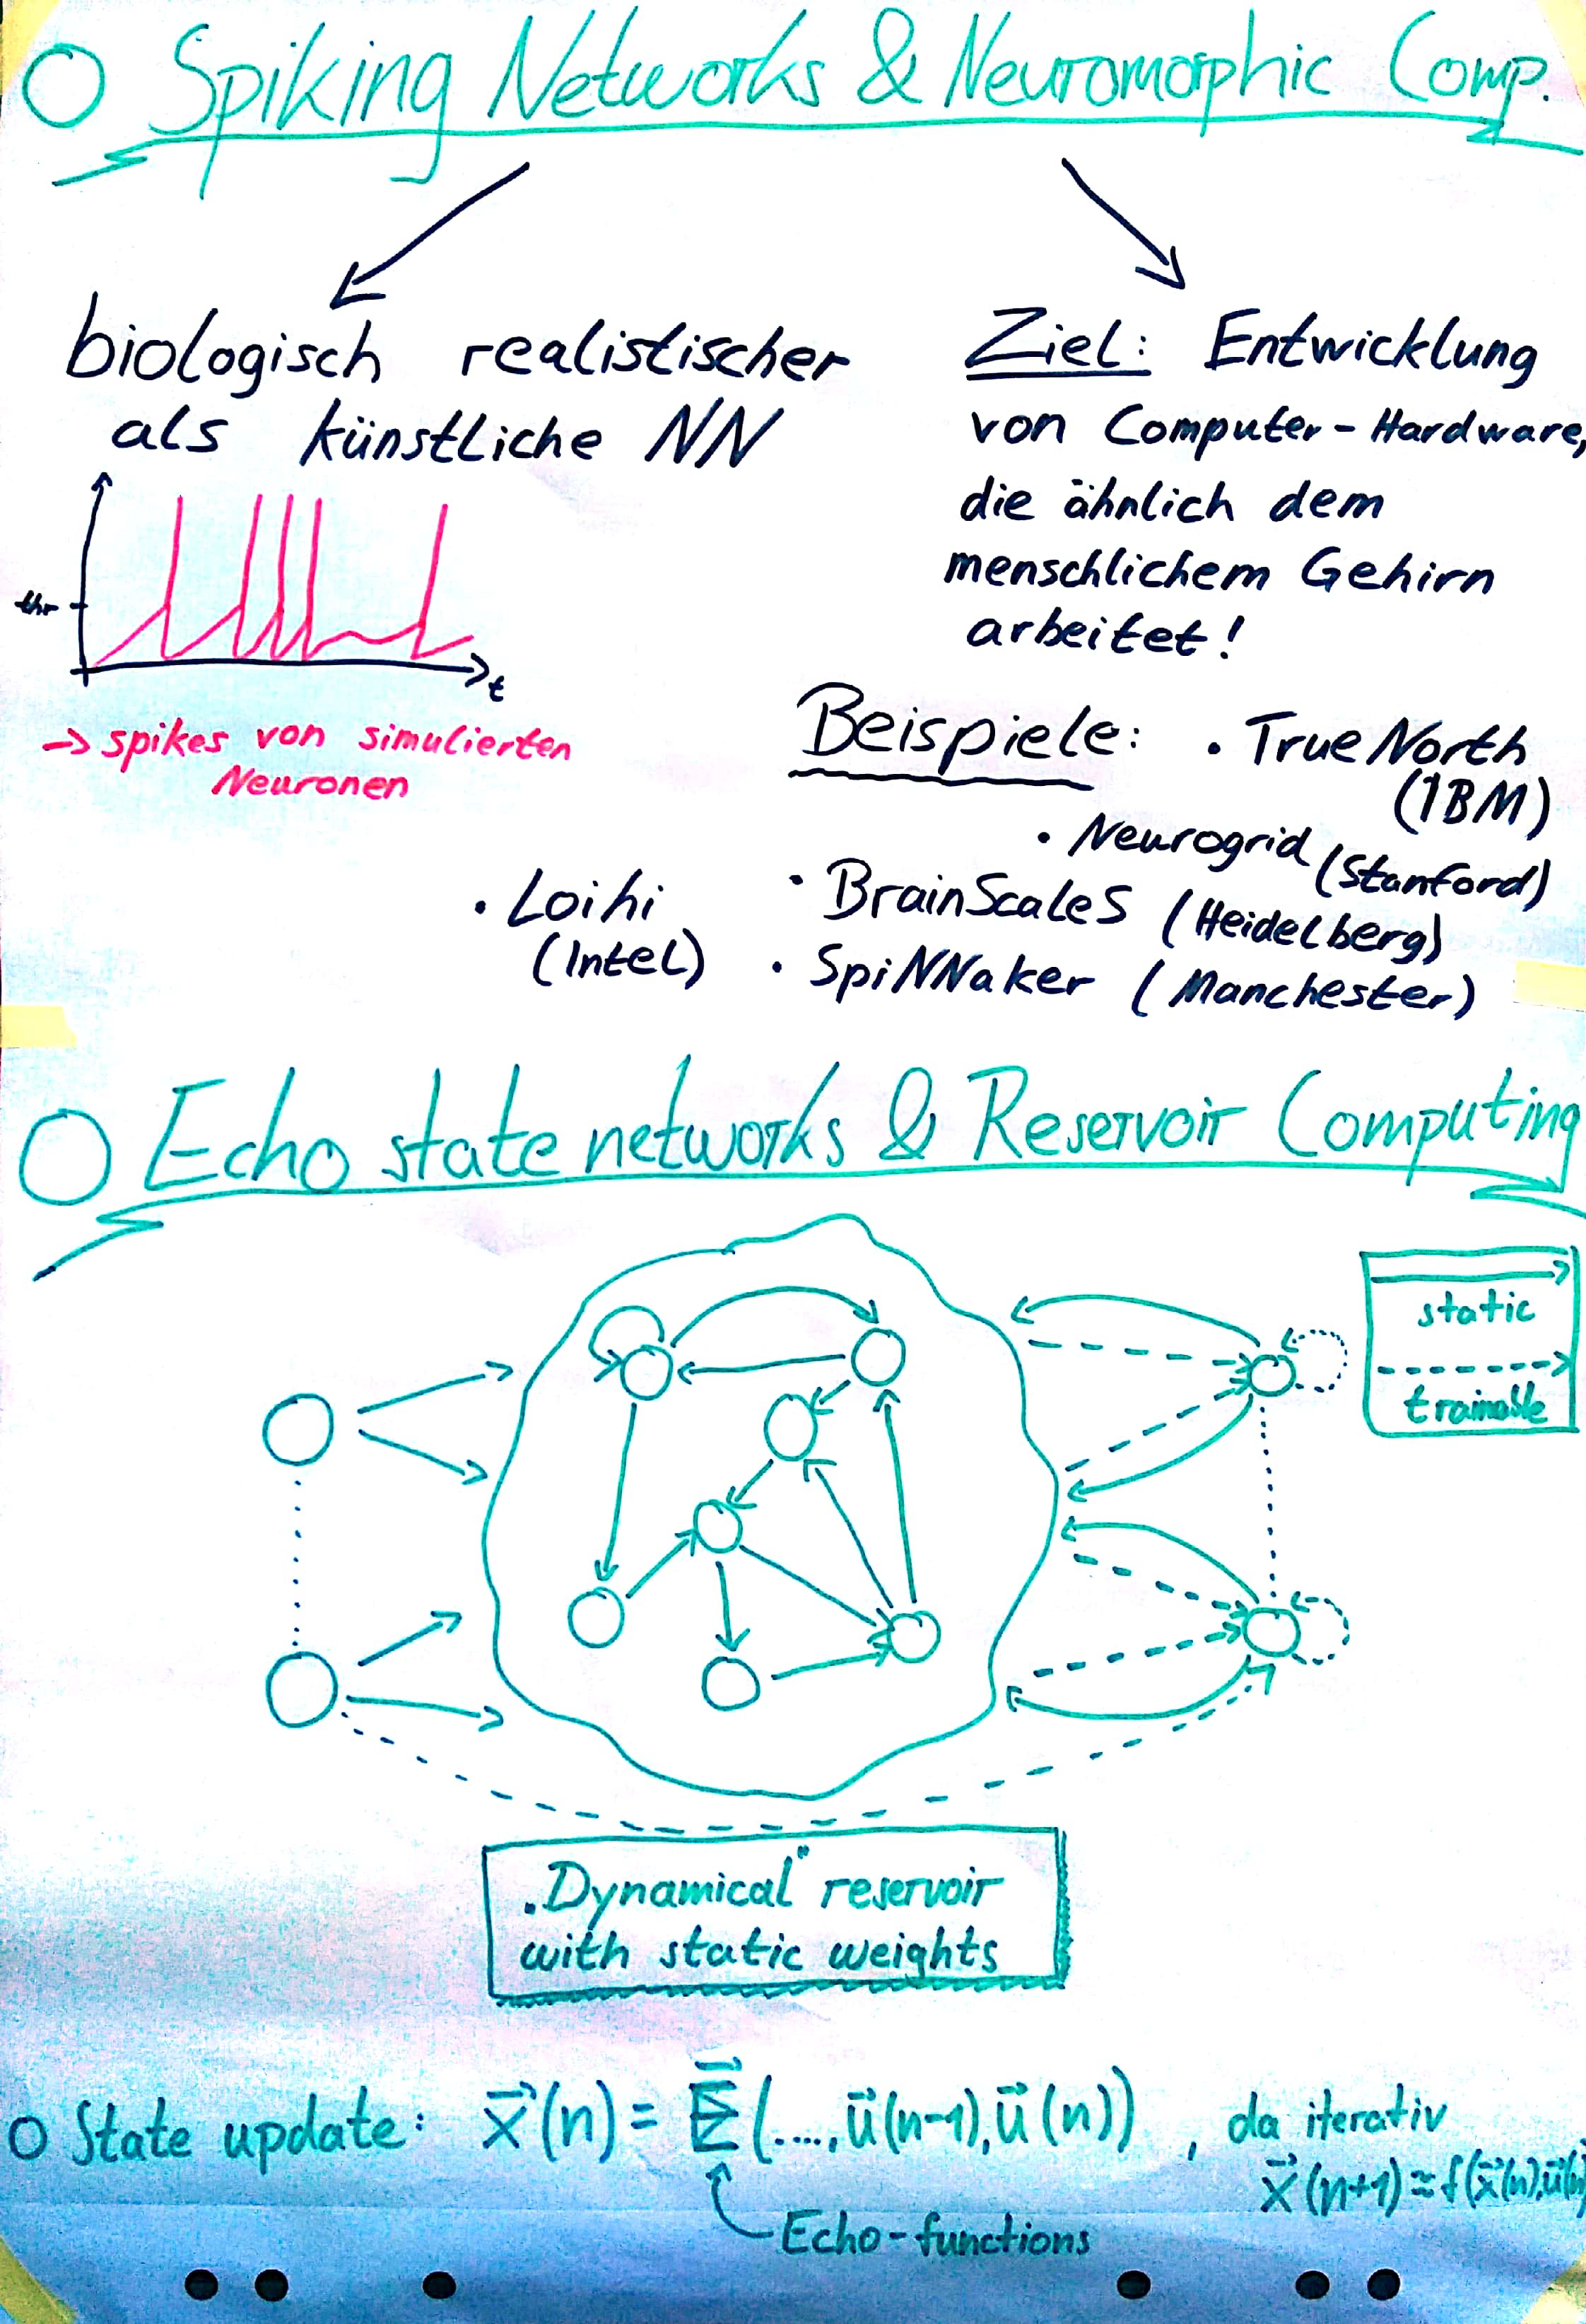 Spiking Networks & Neuromorphic Comp.
biologisch realistischer
als künstliche NN
thr
t
-> spikes von simulierten
Neuronen
Ziel: Entwicklung
von Computer-Hardware,
die ähnlich dem
menschlichem Gehirn
arbeitet!
Beispiele:
• TrueNorth
(IBM)
• Neurogrid (Stanford)
• BrainScaleS (Heidelberg)
• SpiNNaker (Manchester)
• Loihi
(Intel)
Echo state networks & Reservoir Computing
static
trainable
„Dynamical" reservoir
with static weights
State update: x⃗(n) = E⃗(...., u⃗(n-1), u⃗(n)) , da iterativ
x⃗(n+1) = f(x⃗(n), u⃗(n)
Echo-functions